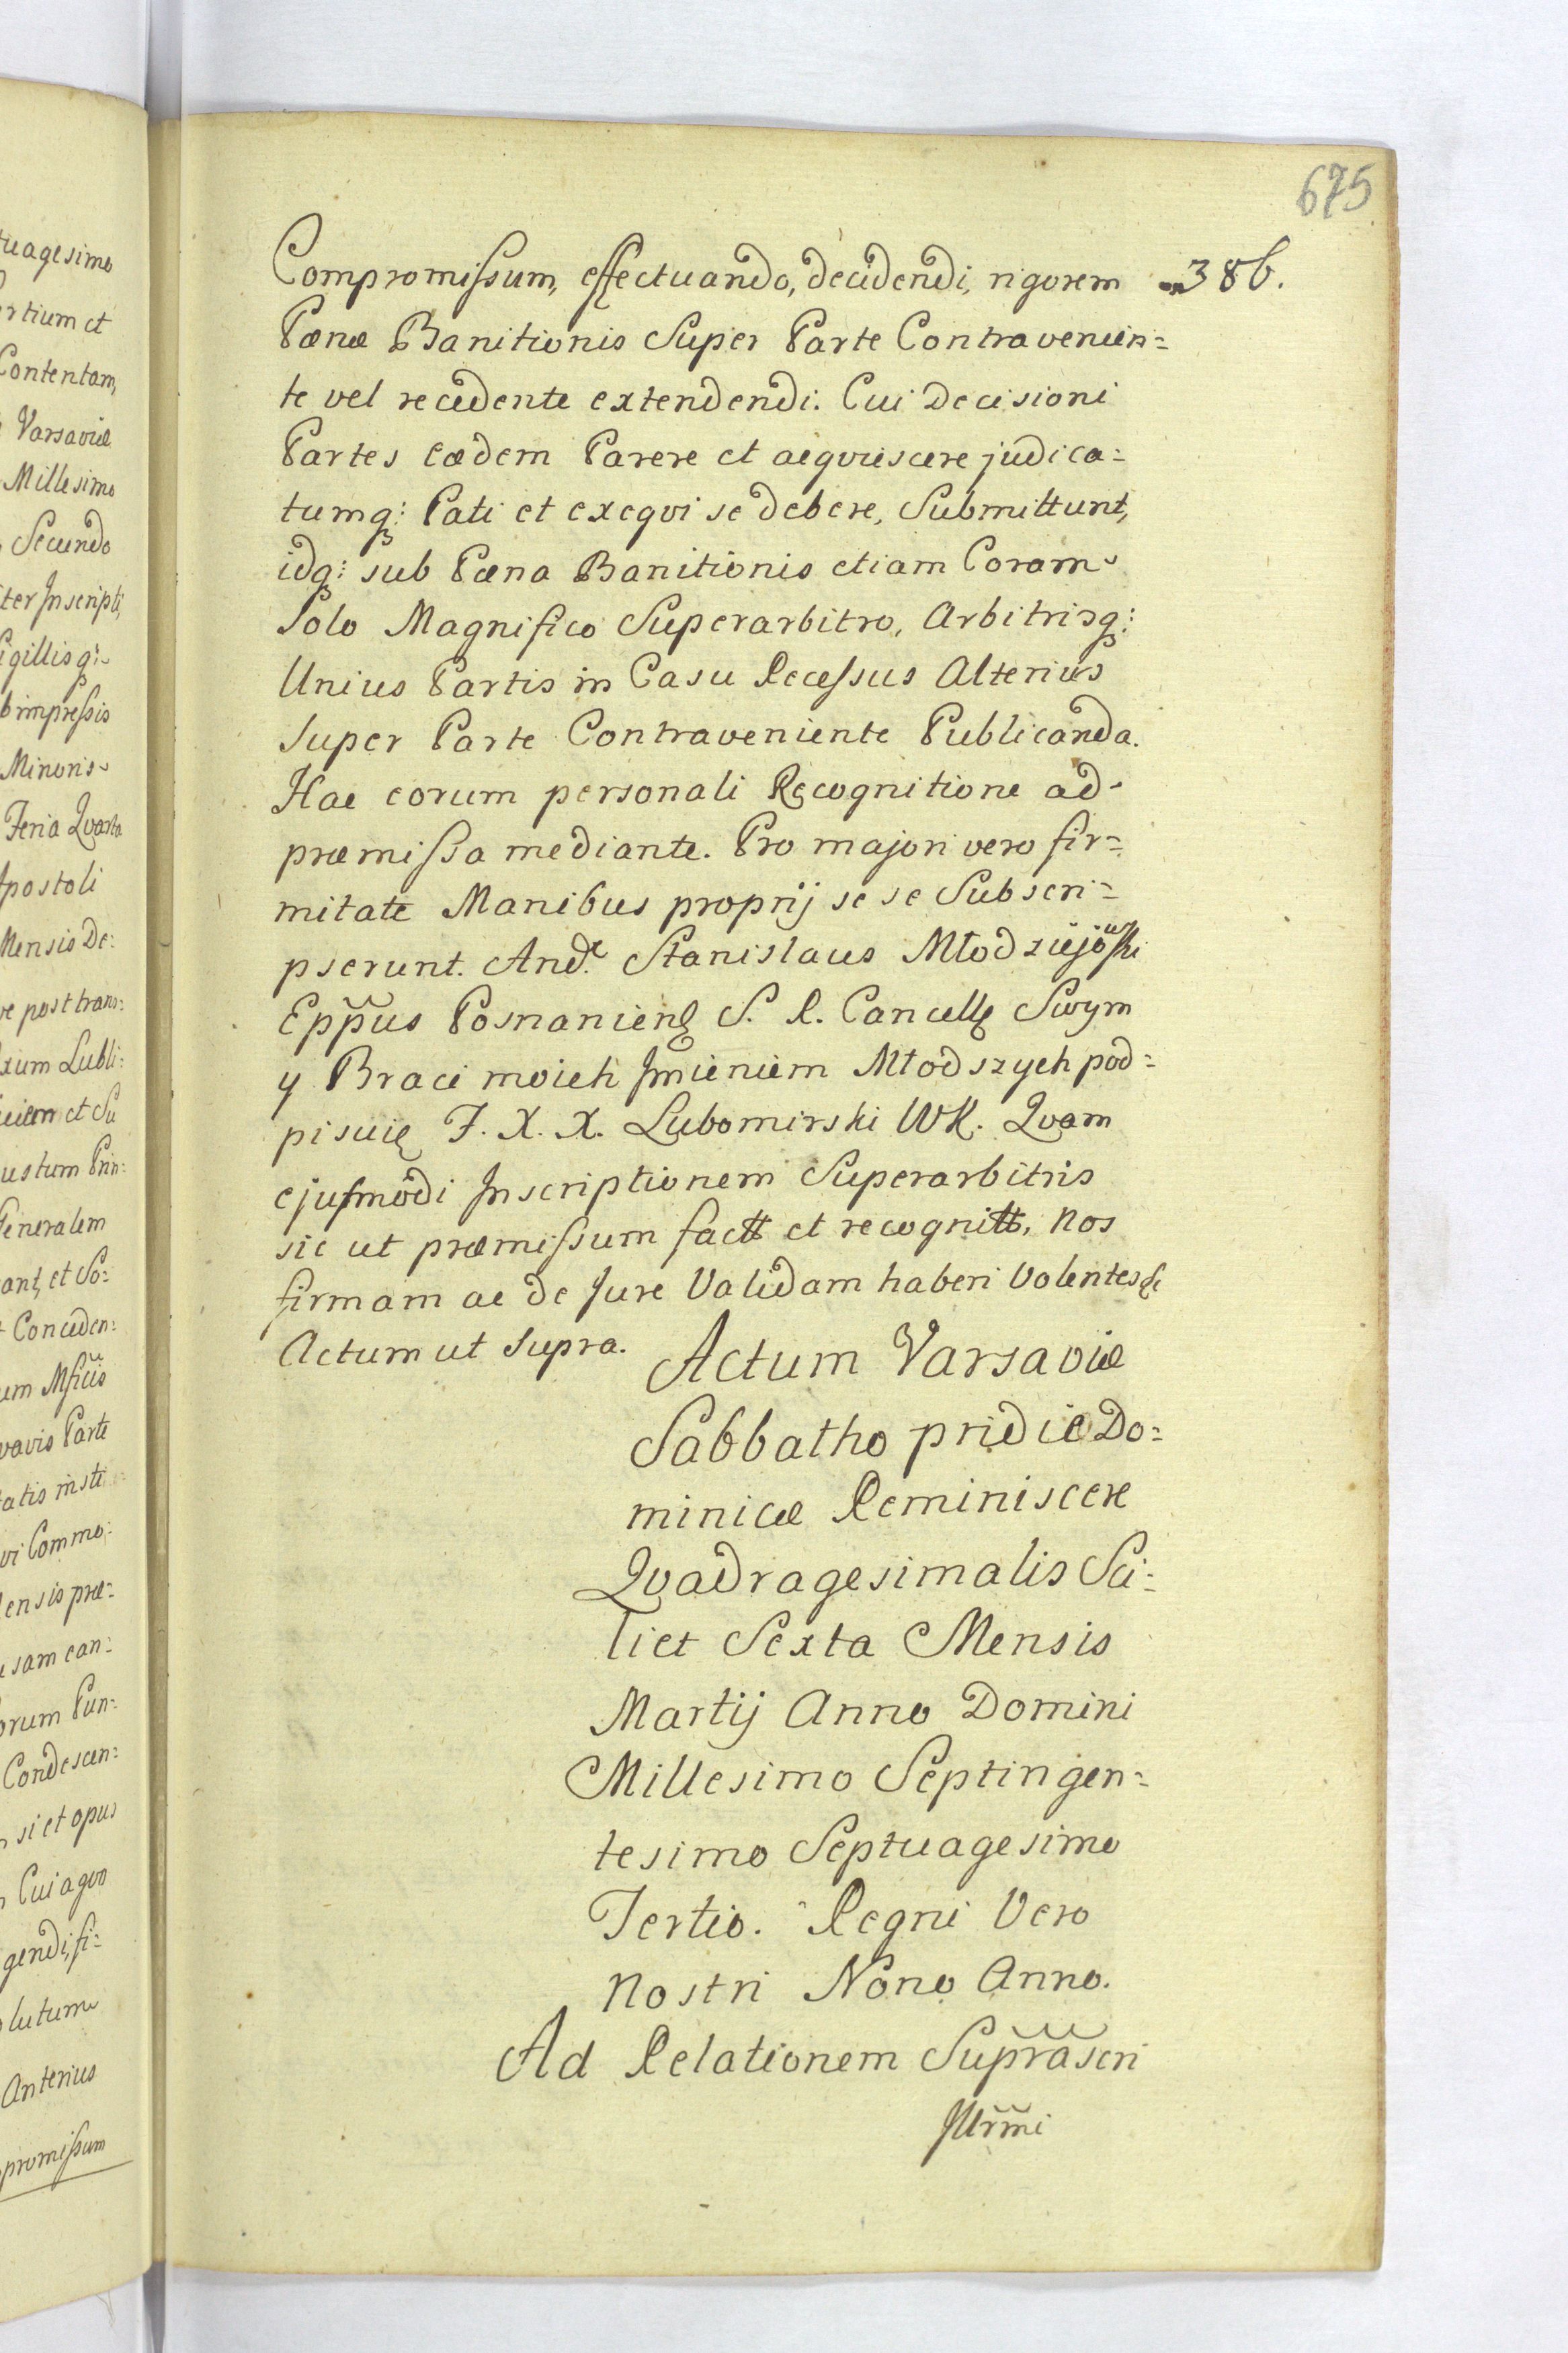 675
386.
Compromissum, effectuando, decidendi, rigorem
Pœnæ Banitionis Super Parte Contravenien=
te vel recedente extendendi. Cui Decisioni
Partes eædem Parere et acqviescere judica=
tumq; Pati et exeqvi se debere, Submittunt,
idq; sub Pœna Banitionis etiam Coram
Solo Magnifico Superarbitro, Arbitrisq;
Unius Partis in Casu Recessus Alterius
Super Parte Contraveniente Publicanda.
Hac eorum personali Recognitione ad
præmissa mediante. Pro majori vero fir=
mitate Manibus proprij se se Subscri=
pserunt. And. Stanislaus Młodziejowski
Eppus Posnanien S. R. Cancell Swym
y Braci moich Jmieniem Młodszych pod=
pisuię F. X. X. Lubomirski WK. Qvam
ejusmodi Jnscriptionem Superarbitris
sic ut præmissum fact et recognitt, nos
firmam ac de Jure Validam haberi Volentes
Actum ut Supra.
Actum Varsaviæ
Sabbatho pridie Do=
minicæ Reminiscere
Qvadragesimalis Sci=
licet Sexta Mensis
Martij Anno Domini
Millesimo Septingen=
tesimo Septuagesimo
Tertio. Regni Vero
Nostri Nono Anno.
Ad Relationem Suprascri
Jllrmi
tuagesimo
rtium et
Contentam,
Varsaviæ
Millesimo
Secundo
ter Jnscripti,
igillisq;
impressis
Minoris
Feria Qvarta
Apostoli
Mensis De=
ve post trans=
xum Lubli=
et Su
ustum Prin=
Generalem
ant, et So=
Conceden=
um Mficis
vavis Parte
tatis insti
vi Commo=
ensis præ=
usam ean=
orum Pun=
Condescen=
si et opus
Cui a qvo
gendi, fi=
lutum
Anterius
promissum